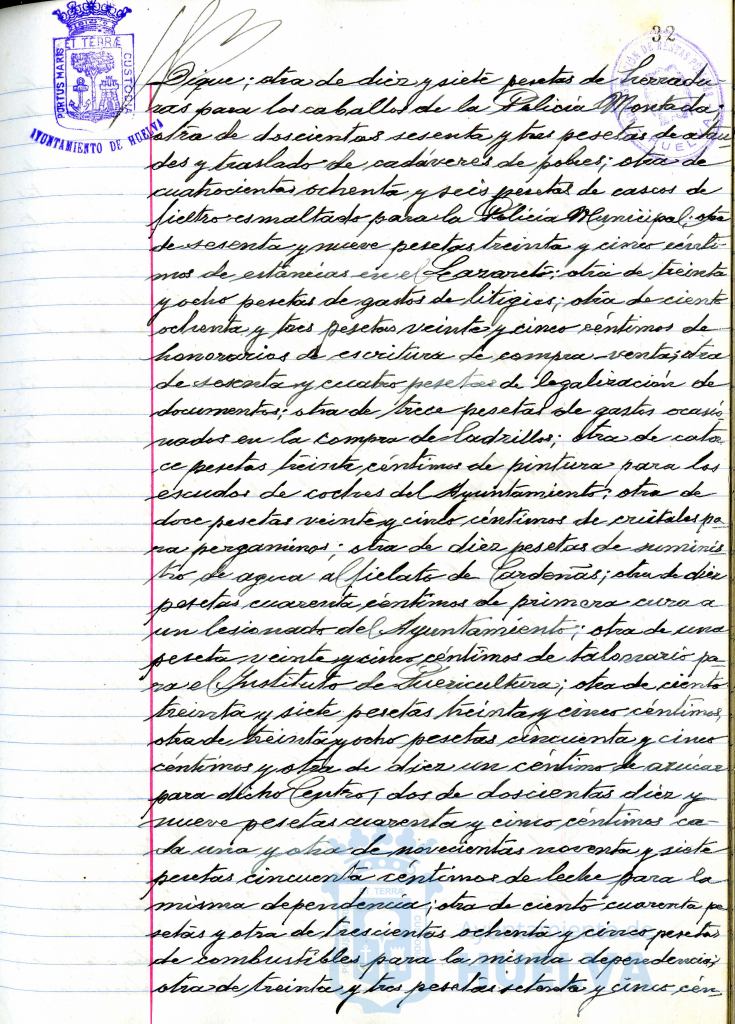 32
PORTUS MARIS
ET TERRÆ
CUSTODIA
AYUNTAMIENTO DE HUELVA
HUELVA
Dique; otra de diez y siete pesetas de herradu-
ras para los caballos de la Policía Montada;
otra de doscientas sesenta y tres pesetas de ataú-
des y traslado de cadáveres de pobres; otra de
cuatrocientas ochenta y seis pesetas de cascos de
fieltro esmaltado para la Policía Municipal; otra
de sesenta y nueve pesetas treinta y cinco cénti-
mos de estancias en el Lazareto; otra de treinta
y ocho pesetas de gastos de litigios; otra de ciento
ochenta y tres pesetas veinte y cinco céntimos de
honorarios de escritura de compra-venta; otra
de sesenta y cuatro pesetas de legalización de
documentos; otra de trece pesetas de gastos ocasio-
nados en la compra de ladrillos; otra de cator-
ce pesetas treinta céntimos de pintura para los
escudos de coches del Ayuntamiento; otra de
doce pesetas veinte y cinco céntimos de cristales pa-
ra pergaminos; otra de diez pesetas de suminis-
tro de agua al fielato de Cardeñas; otra de diez
pesetas cuarenta céntimos de primera cura a
un lesionado del Ayuntamiento; otra de una
peseta veinte y cinco céntimos de talonario pa-
ra el Instituto de Puericultura; otra de ciento
treinta y siete pesetas treinta y cinco céntimos,
otra de treinta y ocho pesetas cincuenta y cinco
céntimos y otra de diez un céntimo de azúcar
para dicho Centro; dos de doscientas diez y
nueve pesetas cuarenta y cinco céntimos ca-
da una y otra de novecientas noventa y siete
pesetas cincuenta céntimos de leche para la
misma dependencia; otra de ciento cuarenta pe-
setas y otra de trescientas ochenta y cinco pesetas
de combustibles para la misma dependencia;
otra de treinta y tres pesetas setenta y cinco cén-
Ayuntamiento de
HUELVA